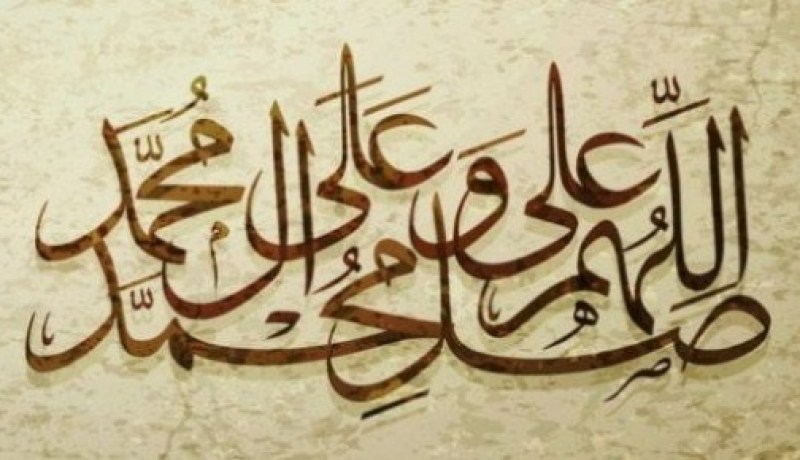 اللَّهُم صل على محمد وعَلَى ال مُحمَّد